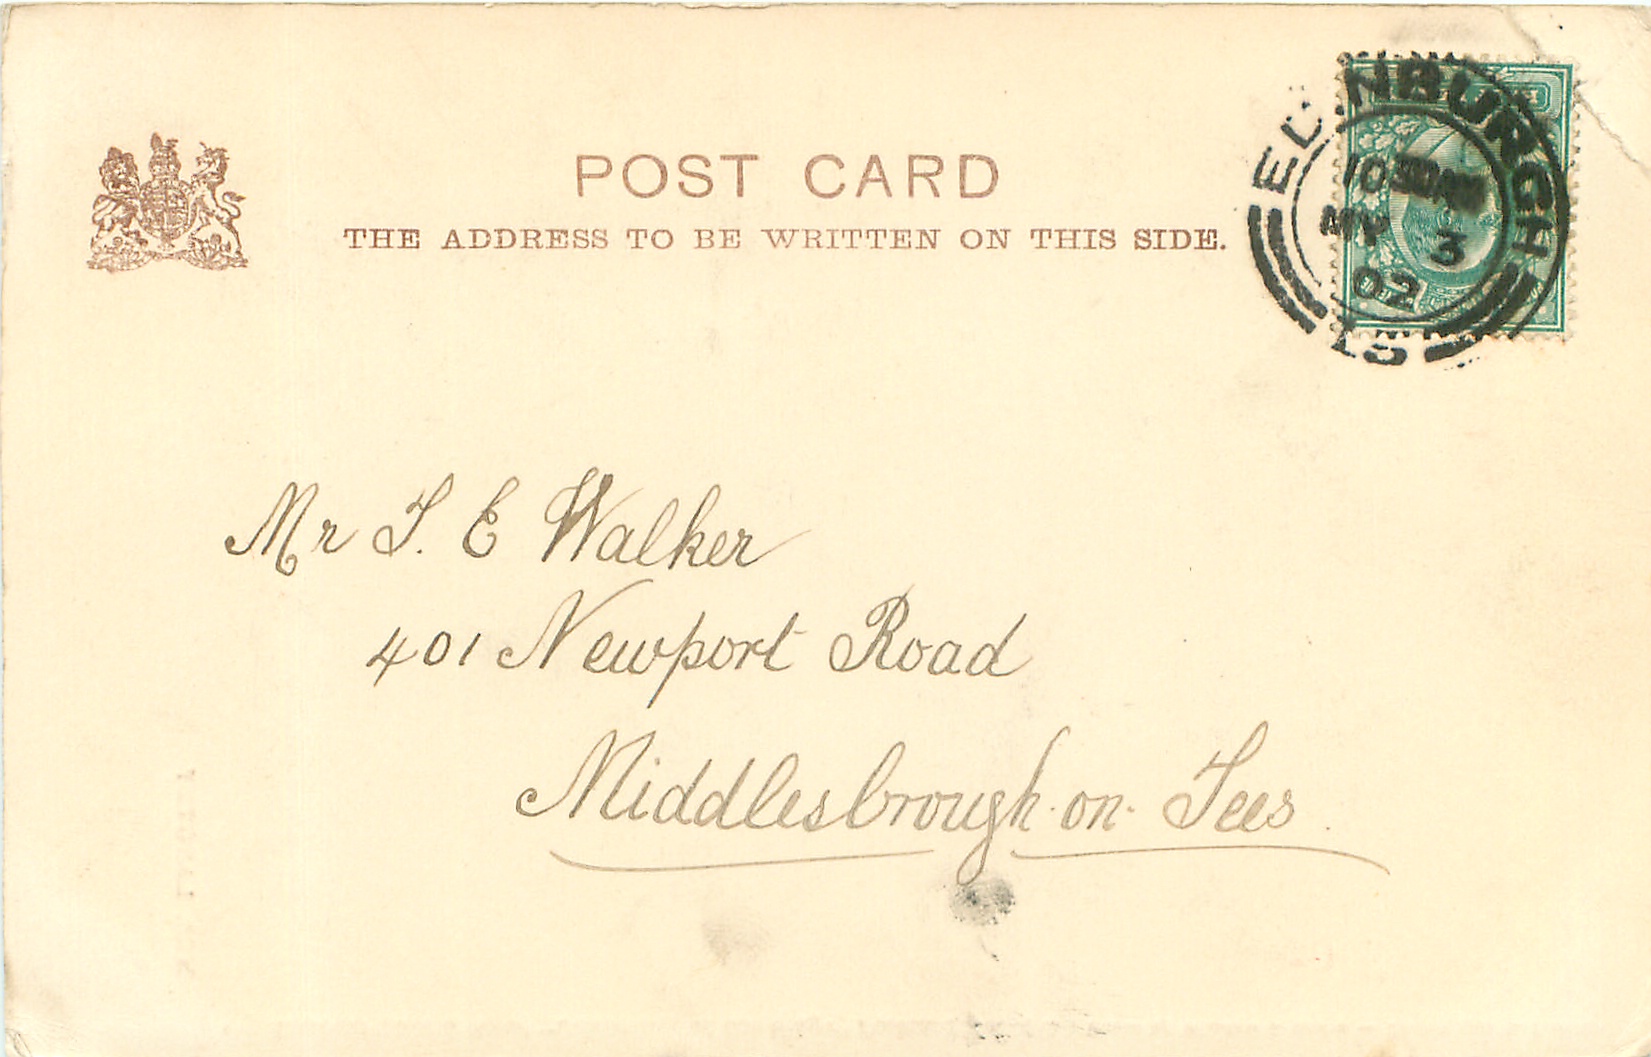 POST CARD
THE ADDRESS TO BE WRITTEN ON THIS SIDE.
EDINBURGH
10
MY 3
02
Mr T. E Walker
401 Newport Road
Middlesbrough-on-Tees